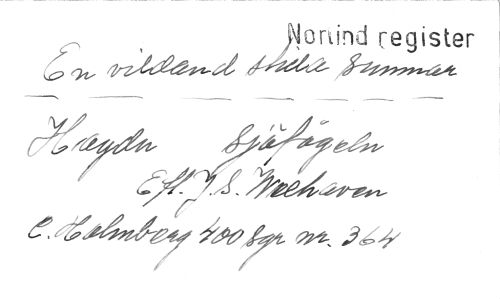 Norlind register
En vildand stilla summar
Haydn sjöfågeln
Eft. J. S. Welhaven
C. Holmberg 400 sgr nr. 364